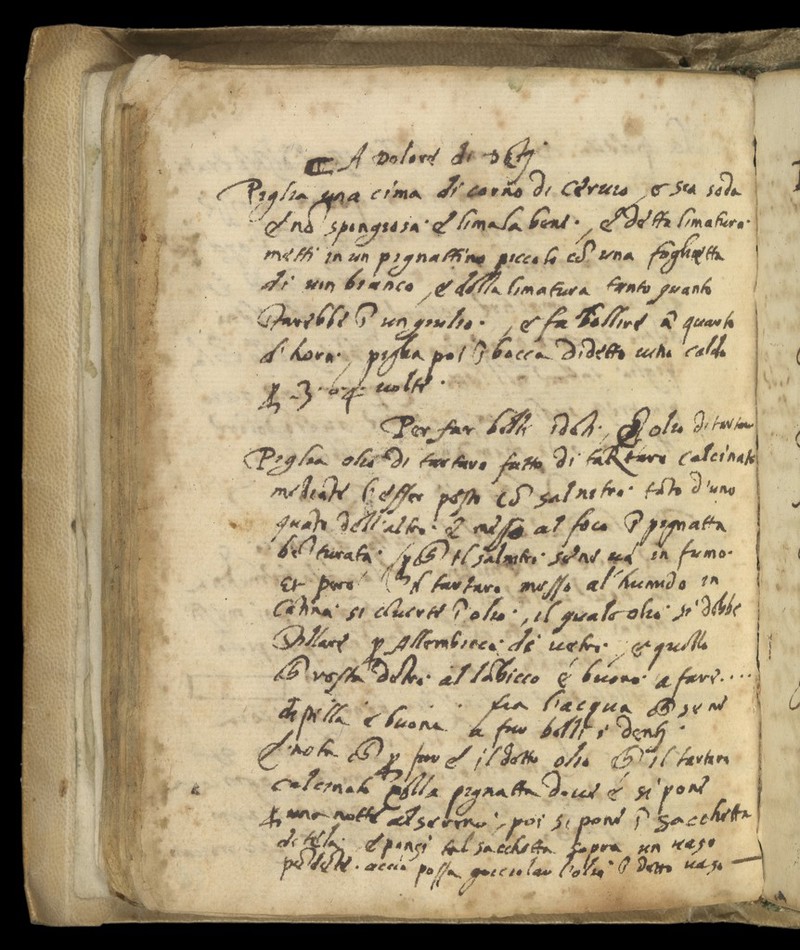 A dolore di dẽtj
Piglia una cima di corno di Ceruio, e sia soda
e nõ spongiosa. e limala bene., e detta limatura
metti in un pignattino piccolo cõ una foglietta
di uin bianco, e della limatura tanto quanto
starebbe ĩ un giulio., e fa bollire ũ quarto
d'hora, piglia poi ĩ bocca di detto uino caldo
ꝑ 3. o 4 uolte.
Per far belli i dẽti, olio di tartaro
Piglia olio di tartaro fatto di tartaro calcinato
mediãte l'esser pesto cõ salnitro. tãto d'uno
quãto dell'altro. e messo al foco ĩ pignatta
bẽ turata. il salnitro se ne ua in fumo.
Et però il tartaro messo al humido in
cãtina si cõuerte ĩ olio., il quale olio si debbe
stillare ꝑ Allembicco di uetro, e quello
resta dẽtro al lãbicco é buono a fare....
fra l'acqua se ne
distilla é buona a far belli i dentj.
E nota ꝑ far il detto olio il tartaro
calcinato nella pignatta doue é si pone
ꝑ una notte al sereno, poi si pone ĩ sacchetta
di tela. e ponsi tal sacchetta sopra un uaso
pẽdẽte. acciò possa gocciolar l'olio ĩ detto uaso